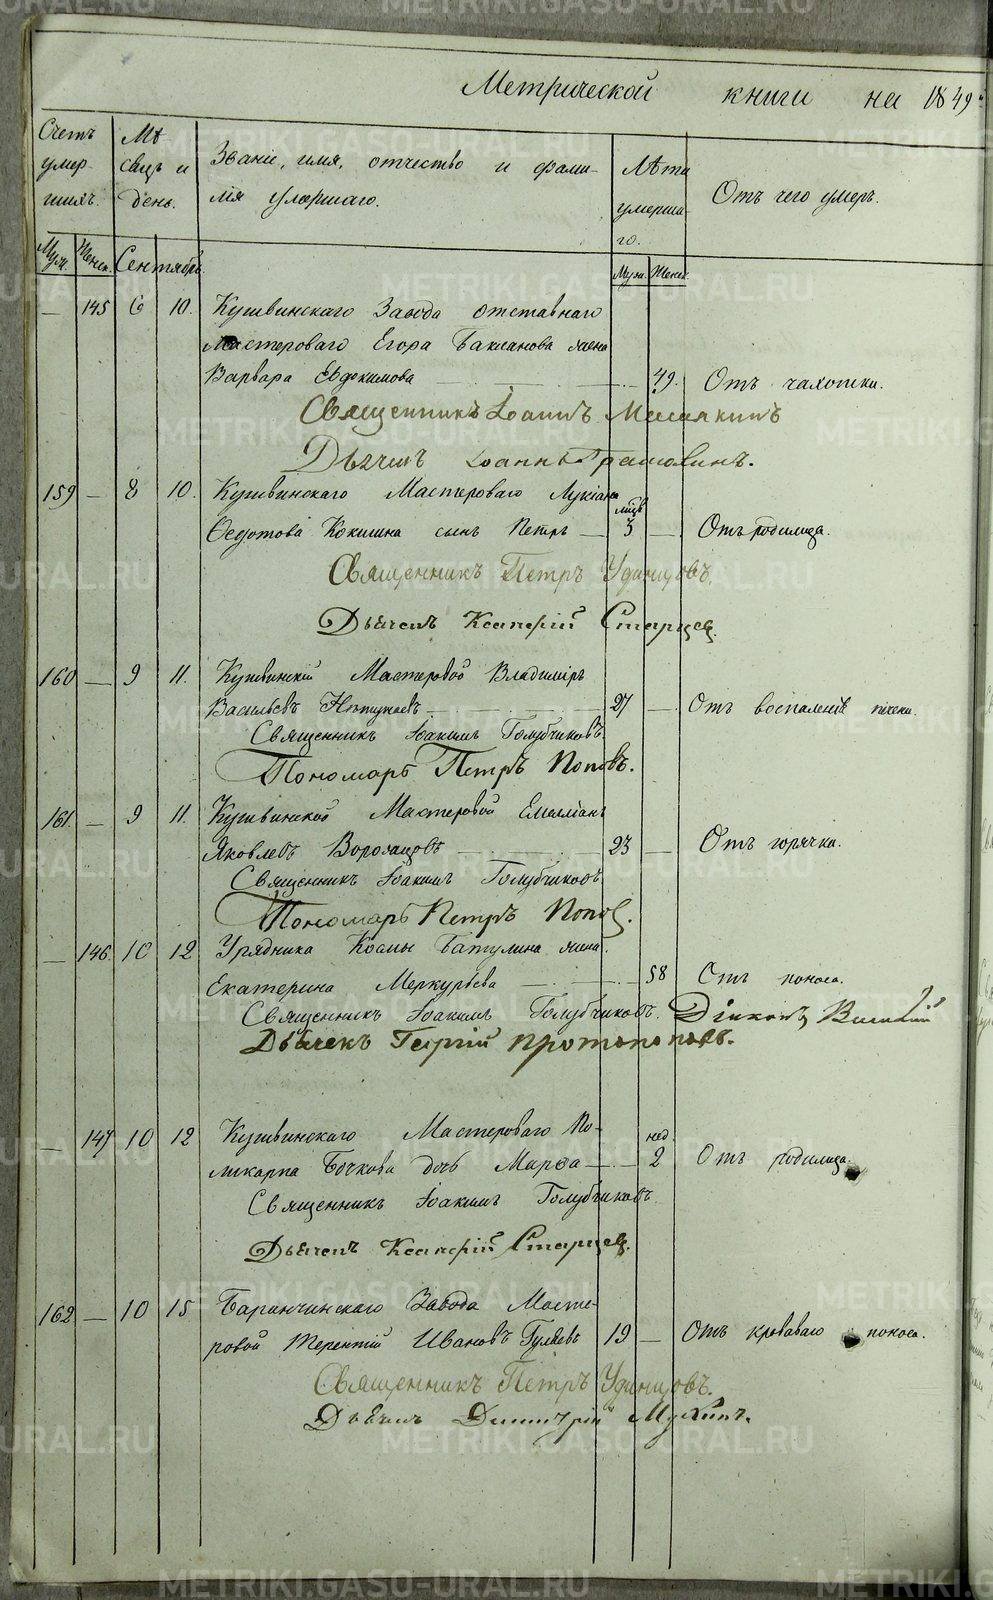 Метрической книги на 1849й
Счетъ умершихъ. Мѣсяцъ и день. Званіе, имя, отчество и фамилія умершаго. Лѣта умершаго. Отъ чего умеръ.
Муж. Женск. Сентябрь Муж. Женск.
— 145 6 10. Кушвинскаго Завода отставнаго
мастероваго Егора Бакланова жена
Варвара Евдокимова 49. Отъ чахотки.
Священникъ Іоаннъ
Дьячекъ Іоаннъ
159 — 8 10. Кушвинскаго Мастероваго Лукіана мѣсц.
Ѳедотова Кокшина сынъ Петръ — 3 — Отъ родимца.
Священникъ Петръ Удинцовъ.
Дьячекъ Ксенофонтій Старцев.
160 — 9 11. Кушвинскій Мастеровой Владиміръ
Васильевъ 27 — Отъ воспаленія печени.
Священникъ Іоакимъ Голубчиковъ.
Пономарь Петръ Поповъ.
161. — 9 11. Кушвинской Мастеровой Емеліанъ
Яковлевъ 23 — Отъ горячки.
Священникъ Іоакимъ Голубчиковъ
Пономарь Петръ Попов.
— 146. 10 12 Урядника Космы Батулина жена
Екатерина Меркурьева 58 Отъ поноса.
Священникъ Іоакимъ Голубчиковъ. Діаконъ
Дьячекъ Георгій Протопоповъ.
— 147 10 12 Кушвинскаго Мастероваго По- нед.
ликарпа Бочкова дочь Марѳа — 2 Отъ родимца.
Священникъ Іоакимъ Голубчиковъ.
Дьячекъ Ксенофонтій Старцев.
162 — 10 15 Баранчинскаго Завода Масте-
ровой Терентій Ивановъ Гуляевъ 19 — Отъ кроваваго поноса.
Священникъ Петръ Удинцовъ.
Дьячекъ Димитрій Мухинъ.
METRIKI.GASO-URAL.RU